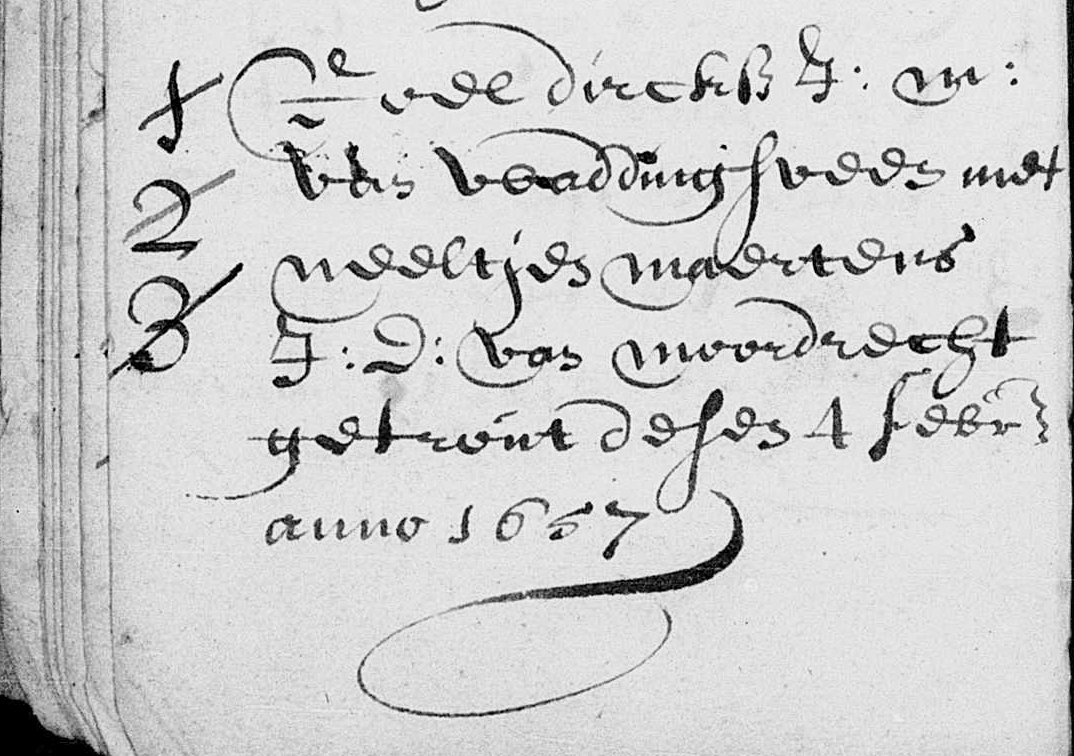 1 Roel dircksz J: m:
2 van waddinghsveen met
neeltjen maertens
3 J: D: van moordrecht
getrout desen 4 febr
anno 1657